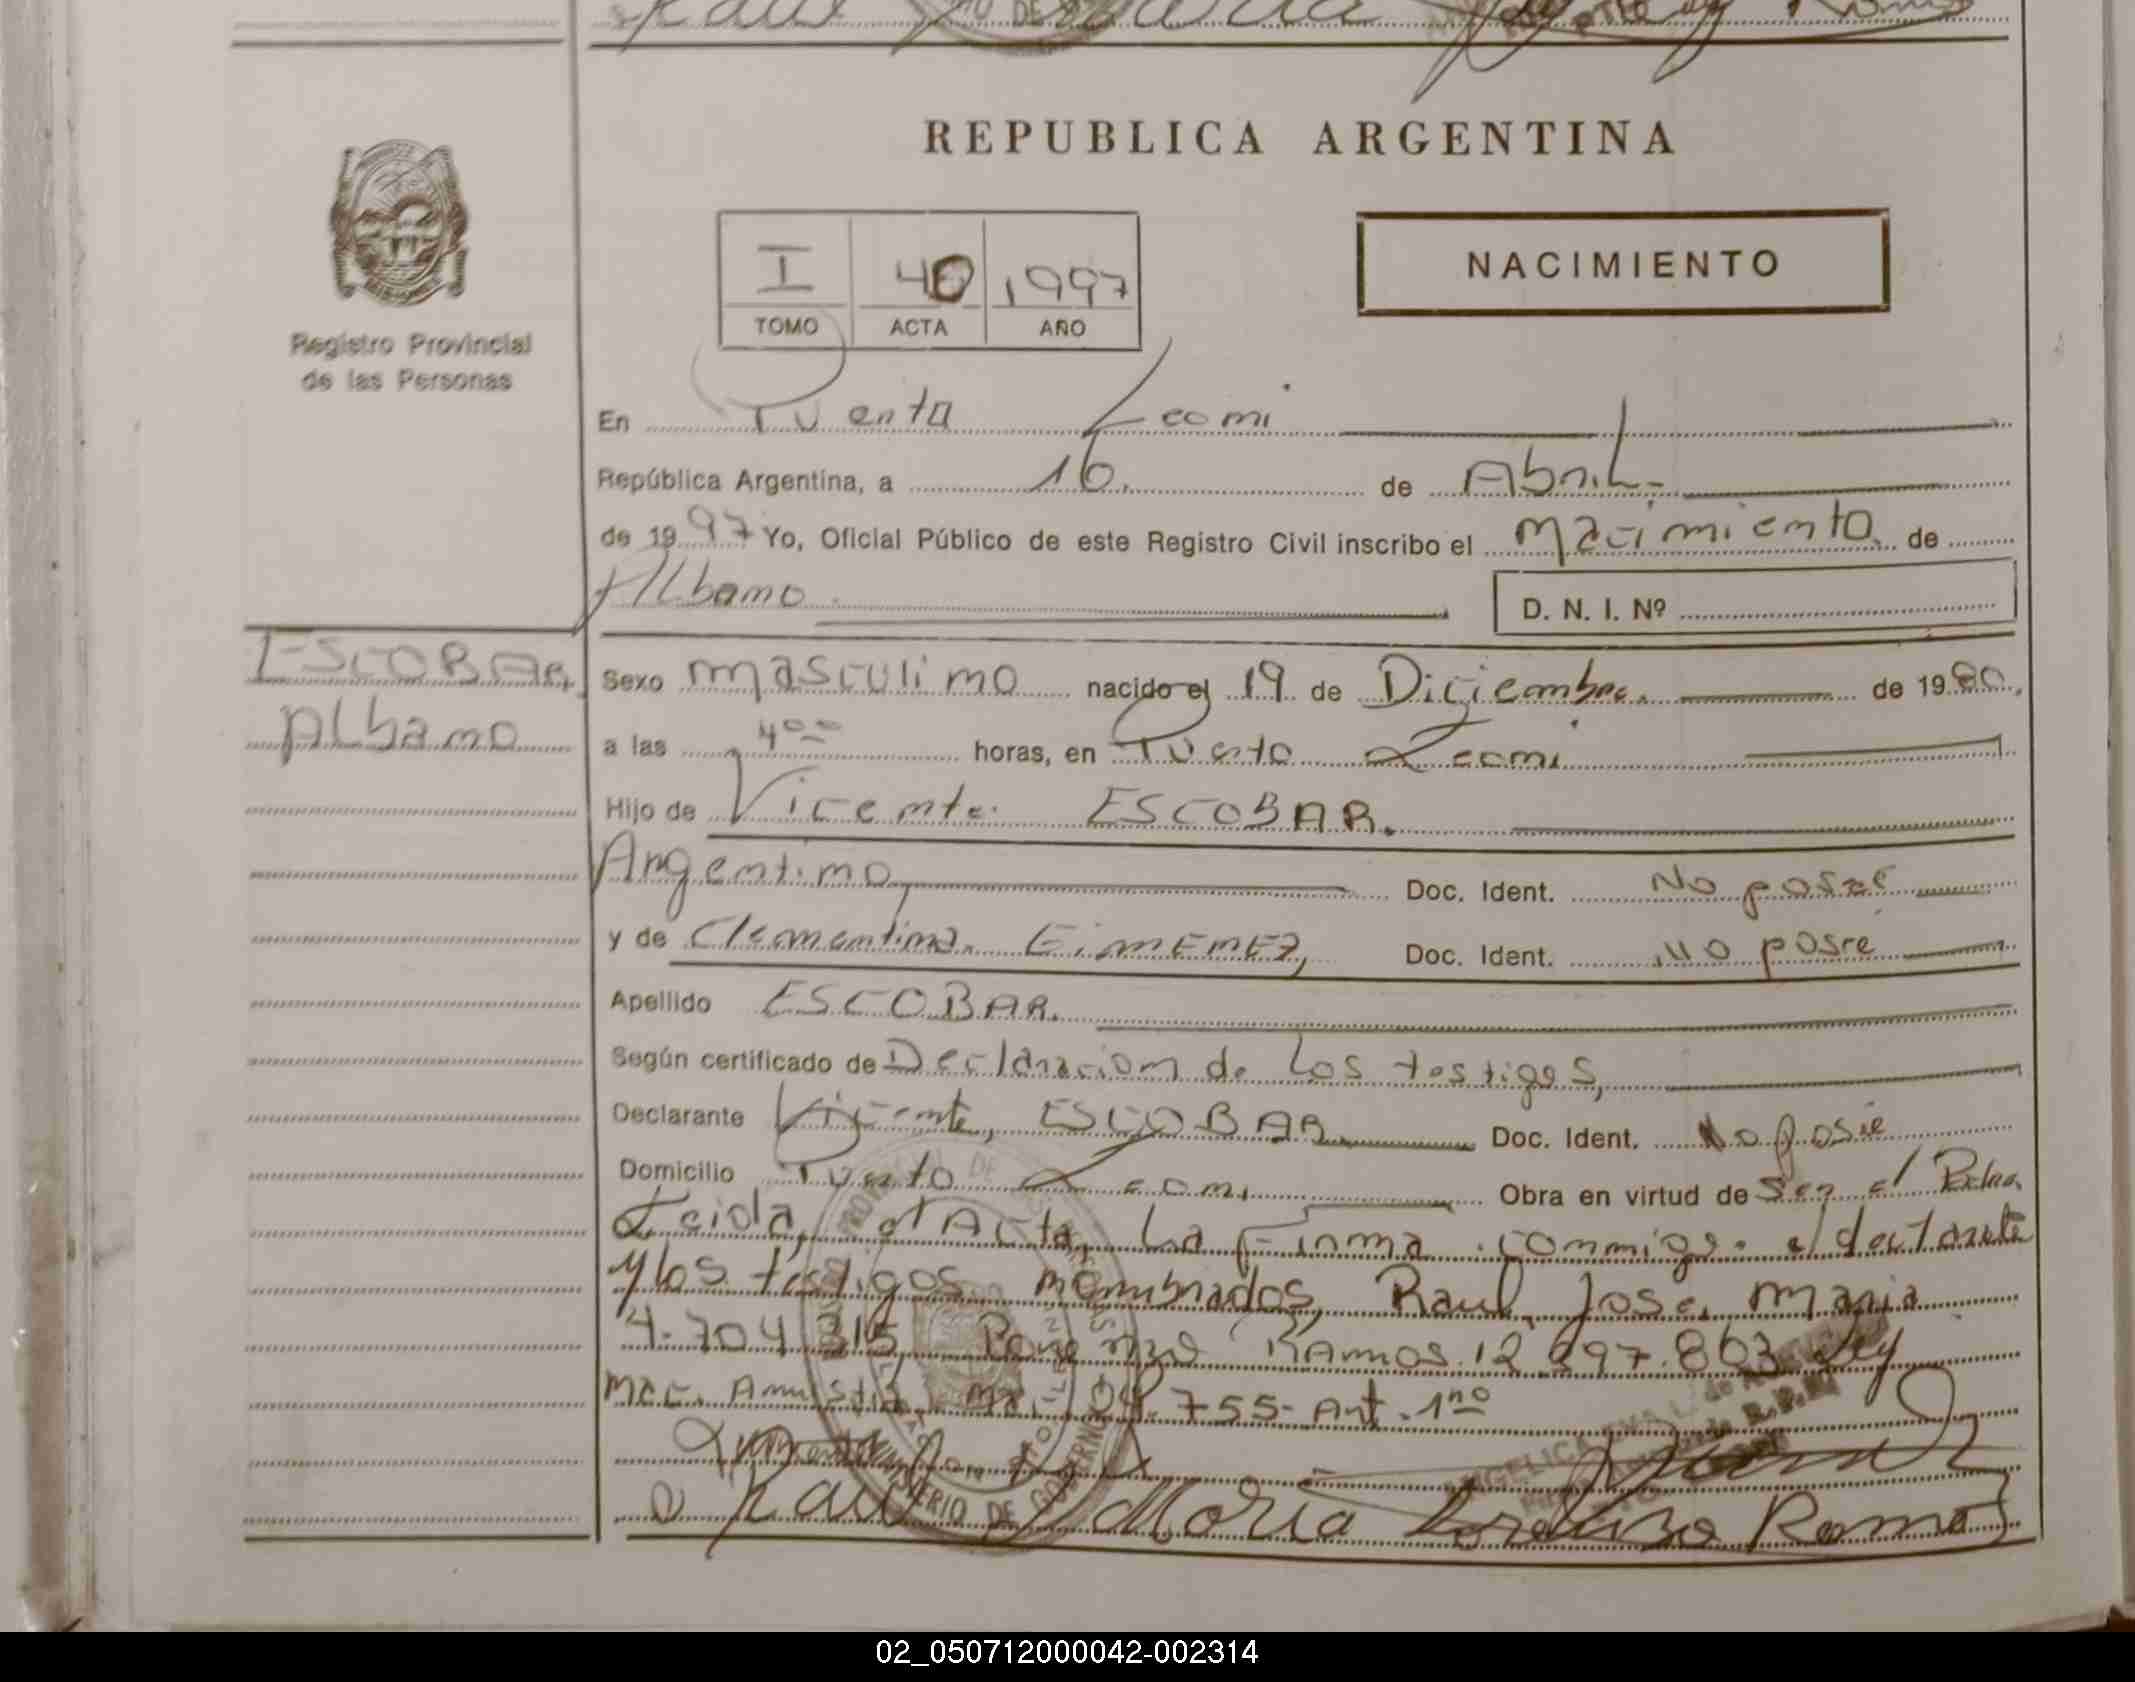 REPUBLICA ARGENTINA
NACIMIENTO
I 40 1997
TOMO ACTA AÑO
Registro Provincial
de las Personas
En Puerto Leoni
República Argentina, a 16 de Abril
de 1997 Yo, Oficial Público de este Registro Civil inscribo el nacimiento de
Albano
D. N. I. Nº
ESCOBAR
Albano
Sexo masculino nacido el 19 de Diciembre de 1980
a las 4 00 horas, en Puerto Leoni
Hijo de Vicente ESCOBAR.
Argentino, Doc. Ident. No posee
y de Clementina GIMENEZ, Doc. Ident. No posee
Apellido ESCOBAR.
Según certificado de Declaracion de Los testigos,
Declarante Vicente, ESCOBAR Doc. Ident. No posee
Domicilio Puerto Leoni Obra en virtud de Ser el Padre.
Leida, el Acta, La Firma conmigo el declarante
y los testigos nombrados, Raul Jose Maria
4.704.315, Ramos 12.897.863 Ley
Nac. Amnistia 755- Art. 1ro
PROVINCIA DE MISIONES
MINISTERIO DE GOBIERNO
ANGELICA
R.P.P.
Raul J Maria Lorenzo Ramos
02_050712000042-002314